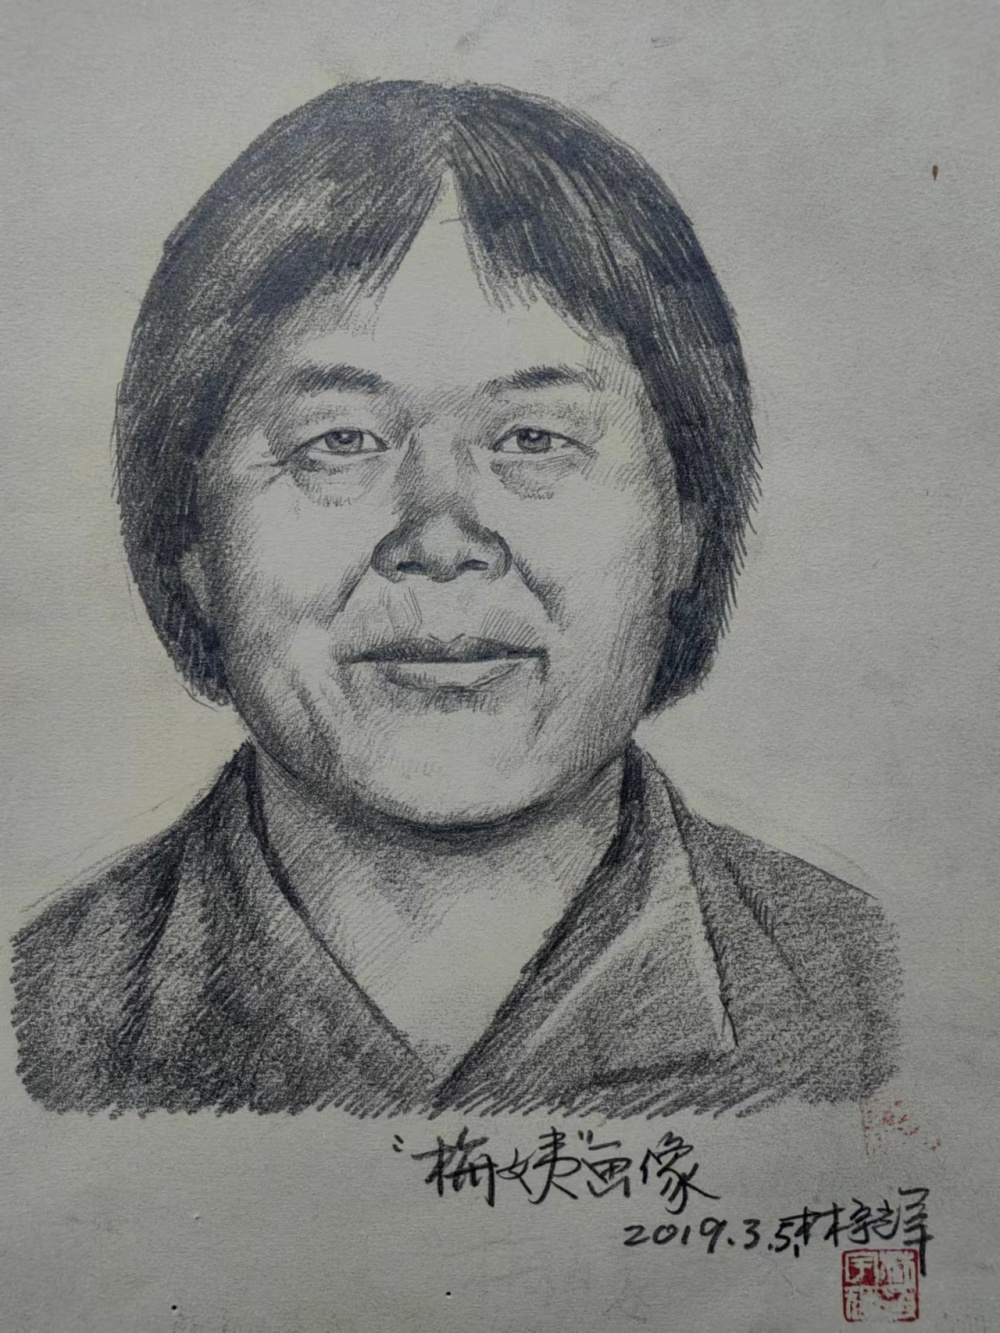 “梅姨”画像
2019.3.5,林宇辉